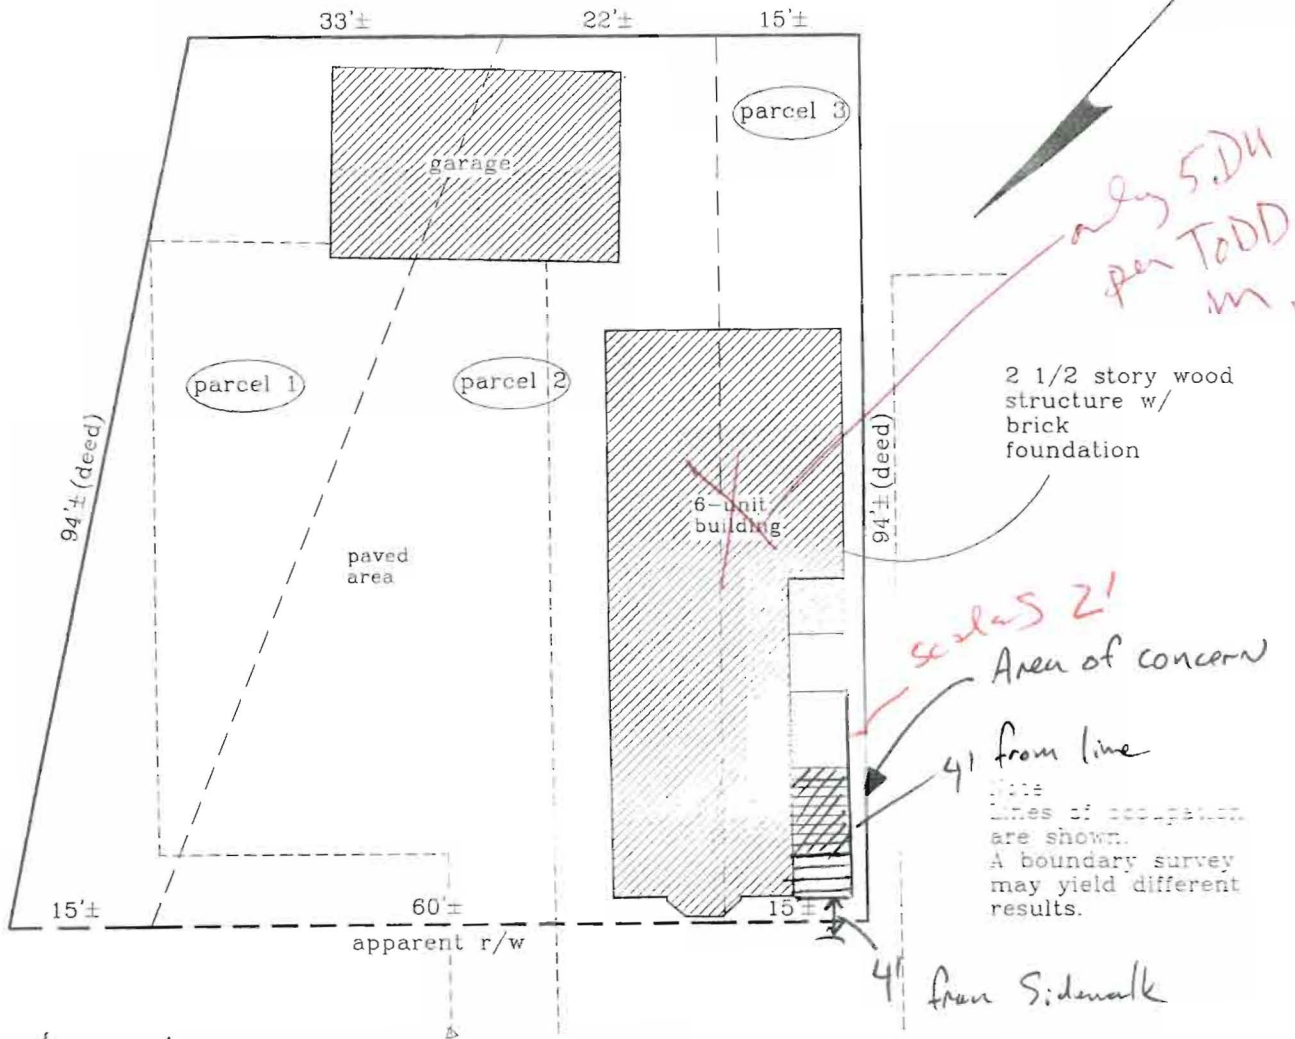 33'±
22'±
15'±
parcel 3
garage
only 5 DU
per TODD
m.
parcel 1
parcel 2
2 1/2 story wood
structure w/
brick
foundation
94'± (deed)
94'± (deed)
6-unit
building
paved
area
scales 2'
Area of concern
4' from line
Note
Lines of occupation
are shown.
A boundary survey
may yield different
results.
15'±
60'±
15'±
apparent r/w
4' from Sidewalk